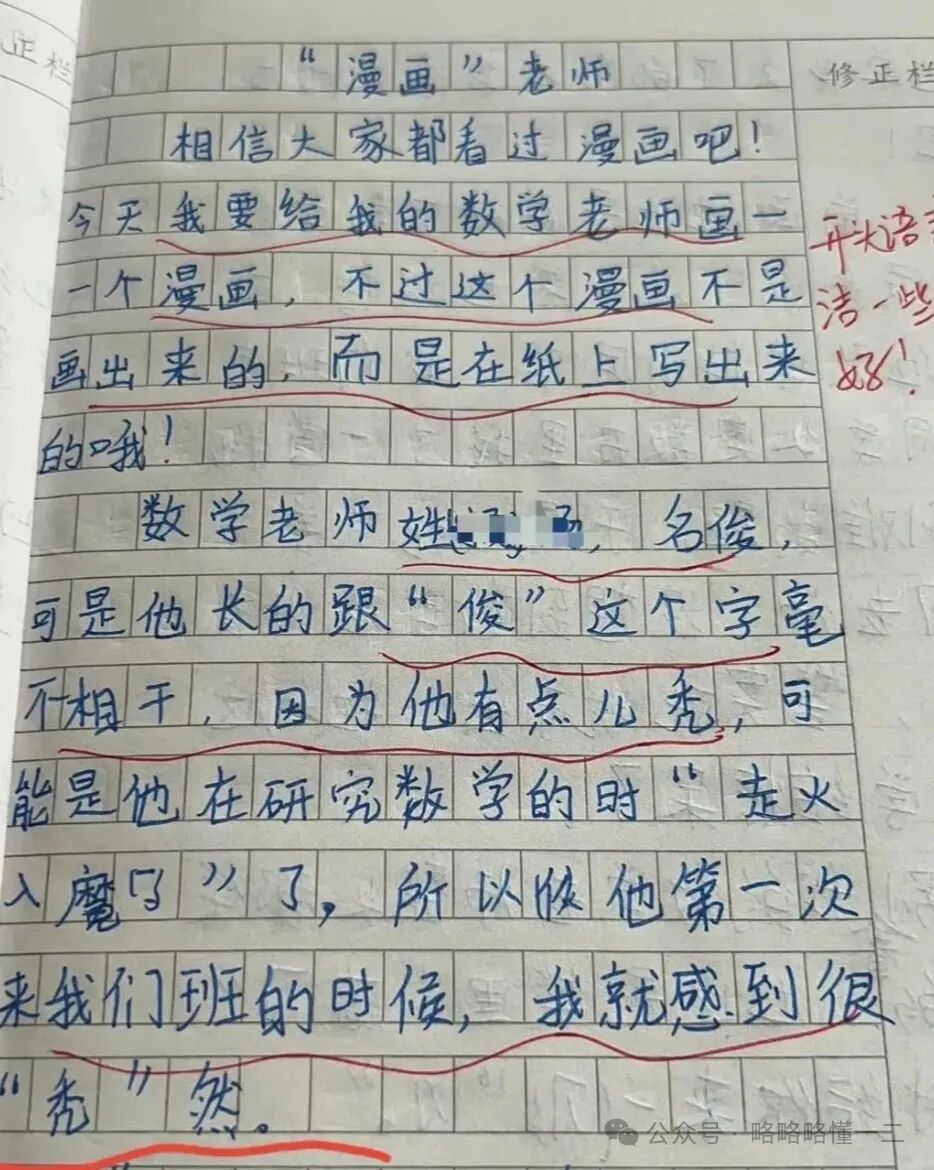 正栏
修正栏
“漫画”老师
相信大家都看过漫画吧！
今天我要给我的数学老师画一
一个漫画，不过这个漫画不是
画出来的，而是在纸上写出来
的哦！
数学老师姓，名俊，
可是他长的跟“俊”这个字毫
不相干，因为他有点儿秃，可
能是他在研究数学的时“走火
入魔了”了，所以他第一次
来我们班的时候，我就感到很
“秃”然。
开头语
洁一些
好！
公众号·略略略懂一二